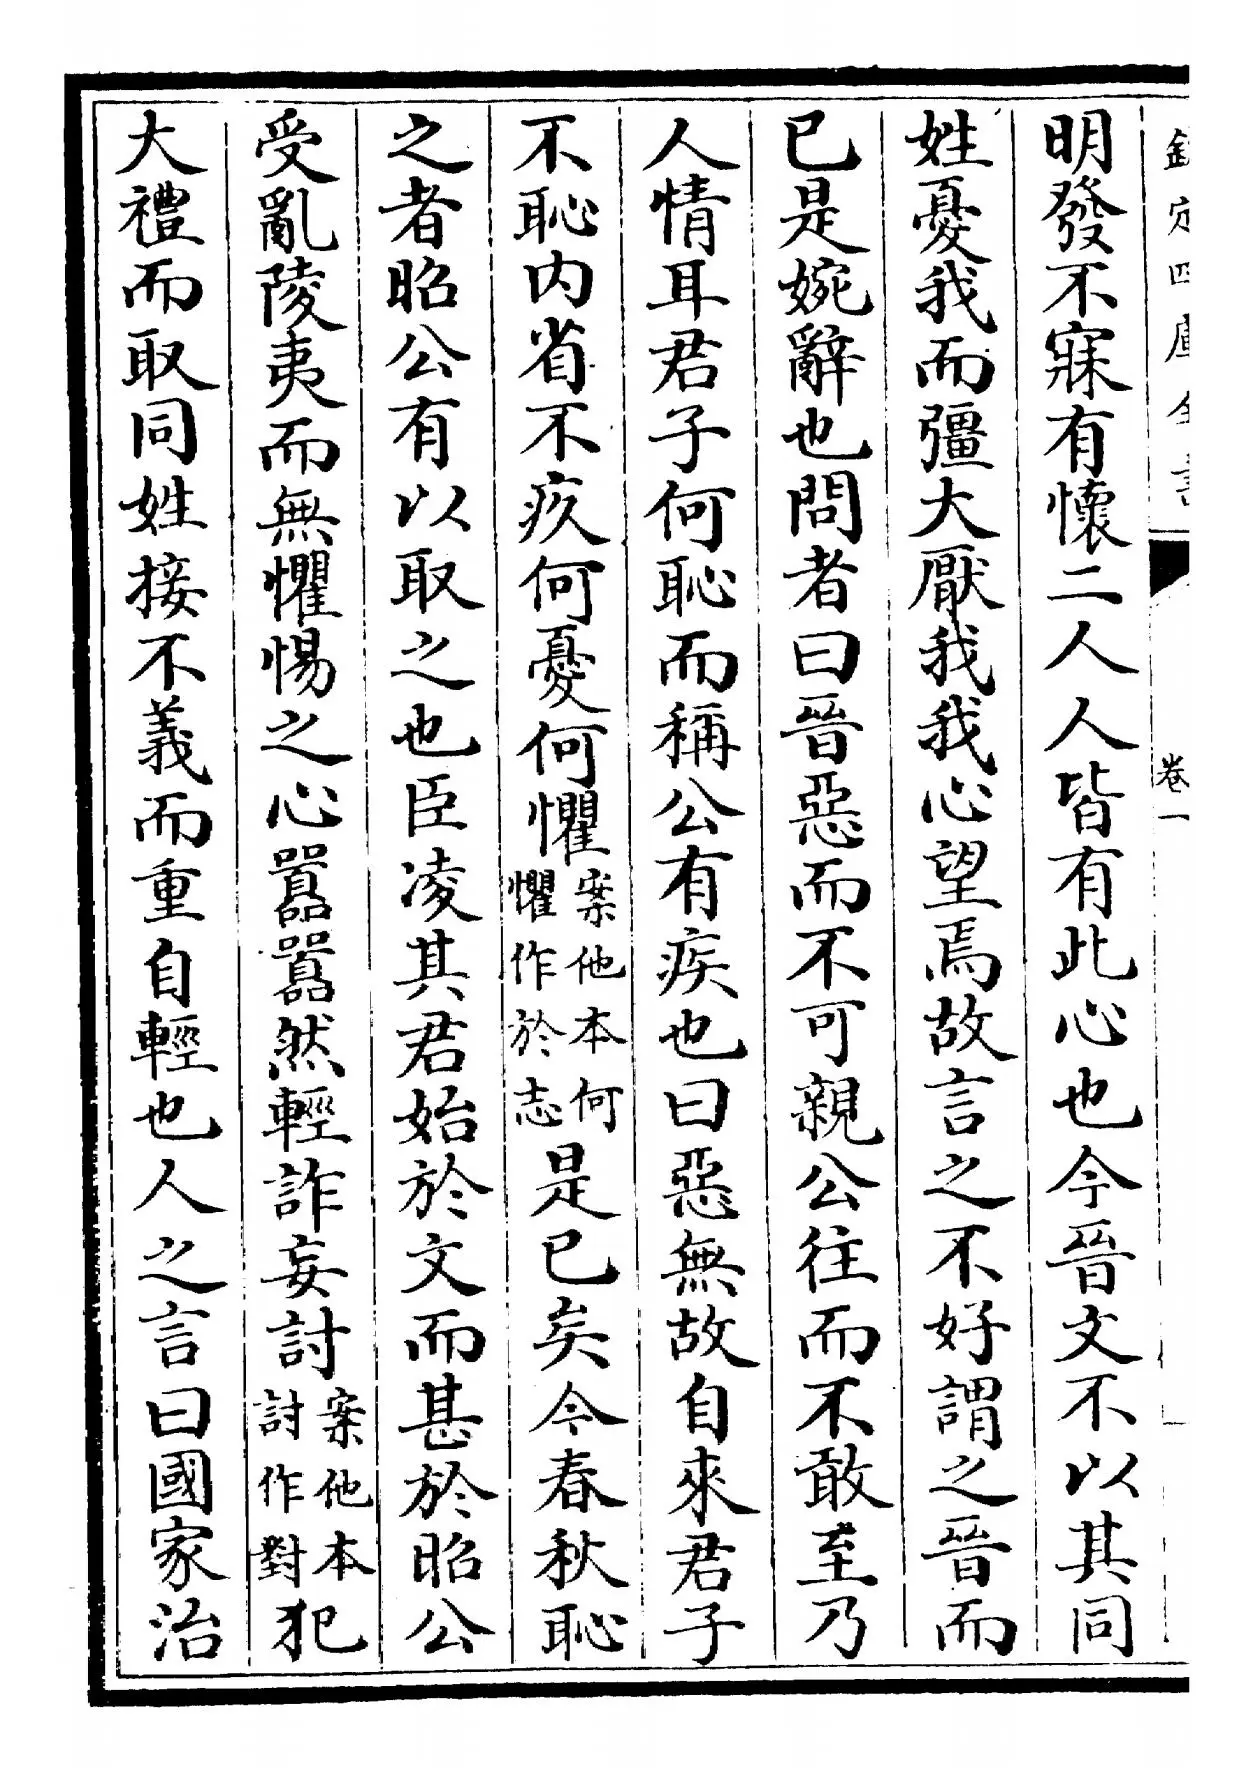 欽定四庫全書
卷一
明發不寐有懷二人人皆有此心也今晉文不以其同
姓憂我而彊大厭我我心望焉故言之不好謂之晉而
已是婉辭也問者曰晉惡而不可親公往而不敢至乃
人情耳君子何恥而稱公有疾也曰惡無故自來君子
不恥內省不疚何憂何懼案他本何懼作於志是已矣今春秋恥
之者昭公有以取之也臣凌其君始於文而甚於昭公
受亂陵夷而無懼惕之心囂囂然輕詐妄討案他本討作對犯
大禮而取同姓接不義而重自輕也人之言曰國家治